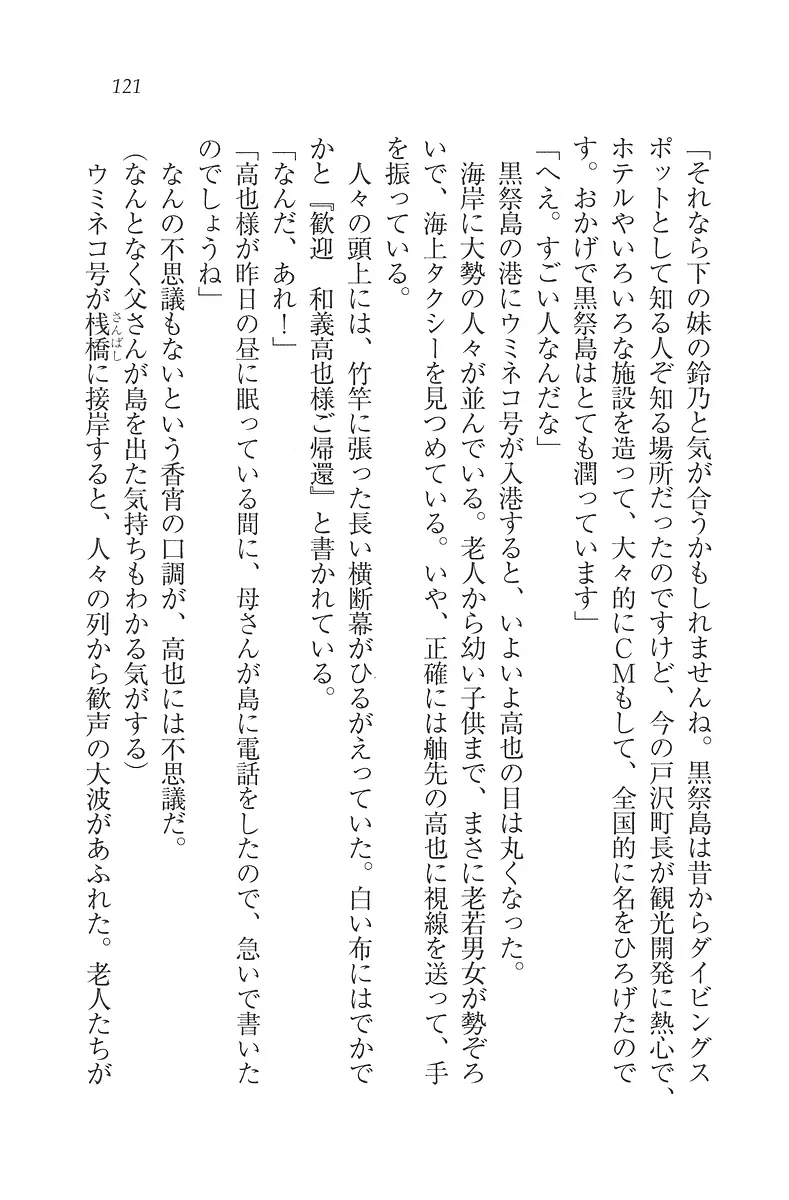 121
「それなら下の妹の鈴乃と気が合うかもしれませんね。黒祭島は昔からダイビングス
ポットとして知る人ぞ知る場所だったのですけど、今の戸沢町長が観光開発に熱心で、
ホテルやいろいろな施設を造って、大々的にCMもして、全国的に名をひろげたので
す。おかげで黒祭島はとても潤っています」
「へえ。すごい人なんだな」
黒祭島の港にウミネコ号が入港すると、いよいよ高也の目は丸くなった。
海岸に大勢の人々が並んでいる。老人から幼い子供まで、まさに老若男女が勢ぞろ
いで、海上タクシーを見つめている。いや、正確には舳先の高也に視線を送って、手
を振っている。
人々の頭上には、竹竿に張った長い横断幕がひるがえっていた。白い布にはでかで
かと『歓迎　和義高也様ご帰還』と書かれている。
「なんだ、あれ！」
「高也様が昨日の昼に眠っている間に、母さんが島に電話をしたので、急いで書いた
のでしょうね」
なんの不思議もないという香宵の口調が、高也には不思議だ。
（なんとなく父さんが島を出た気持ちもわかる気がする）
ウミネコ号が桟橋さんばしに接岸すると、人々の列から歓声の大波があふれた。老人たちが